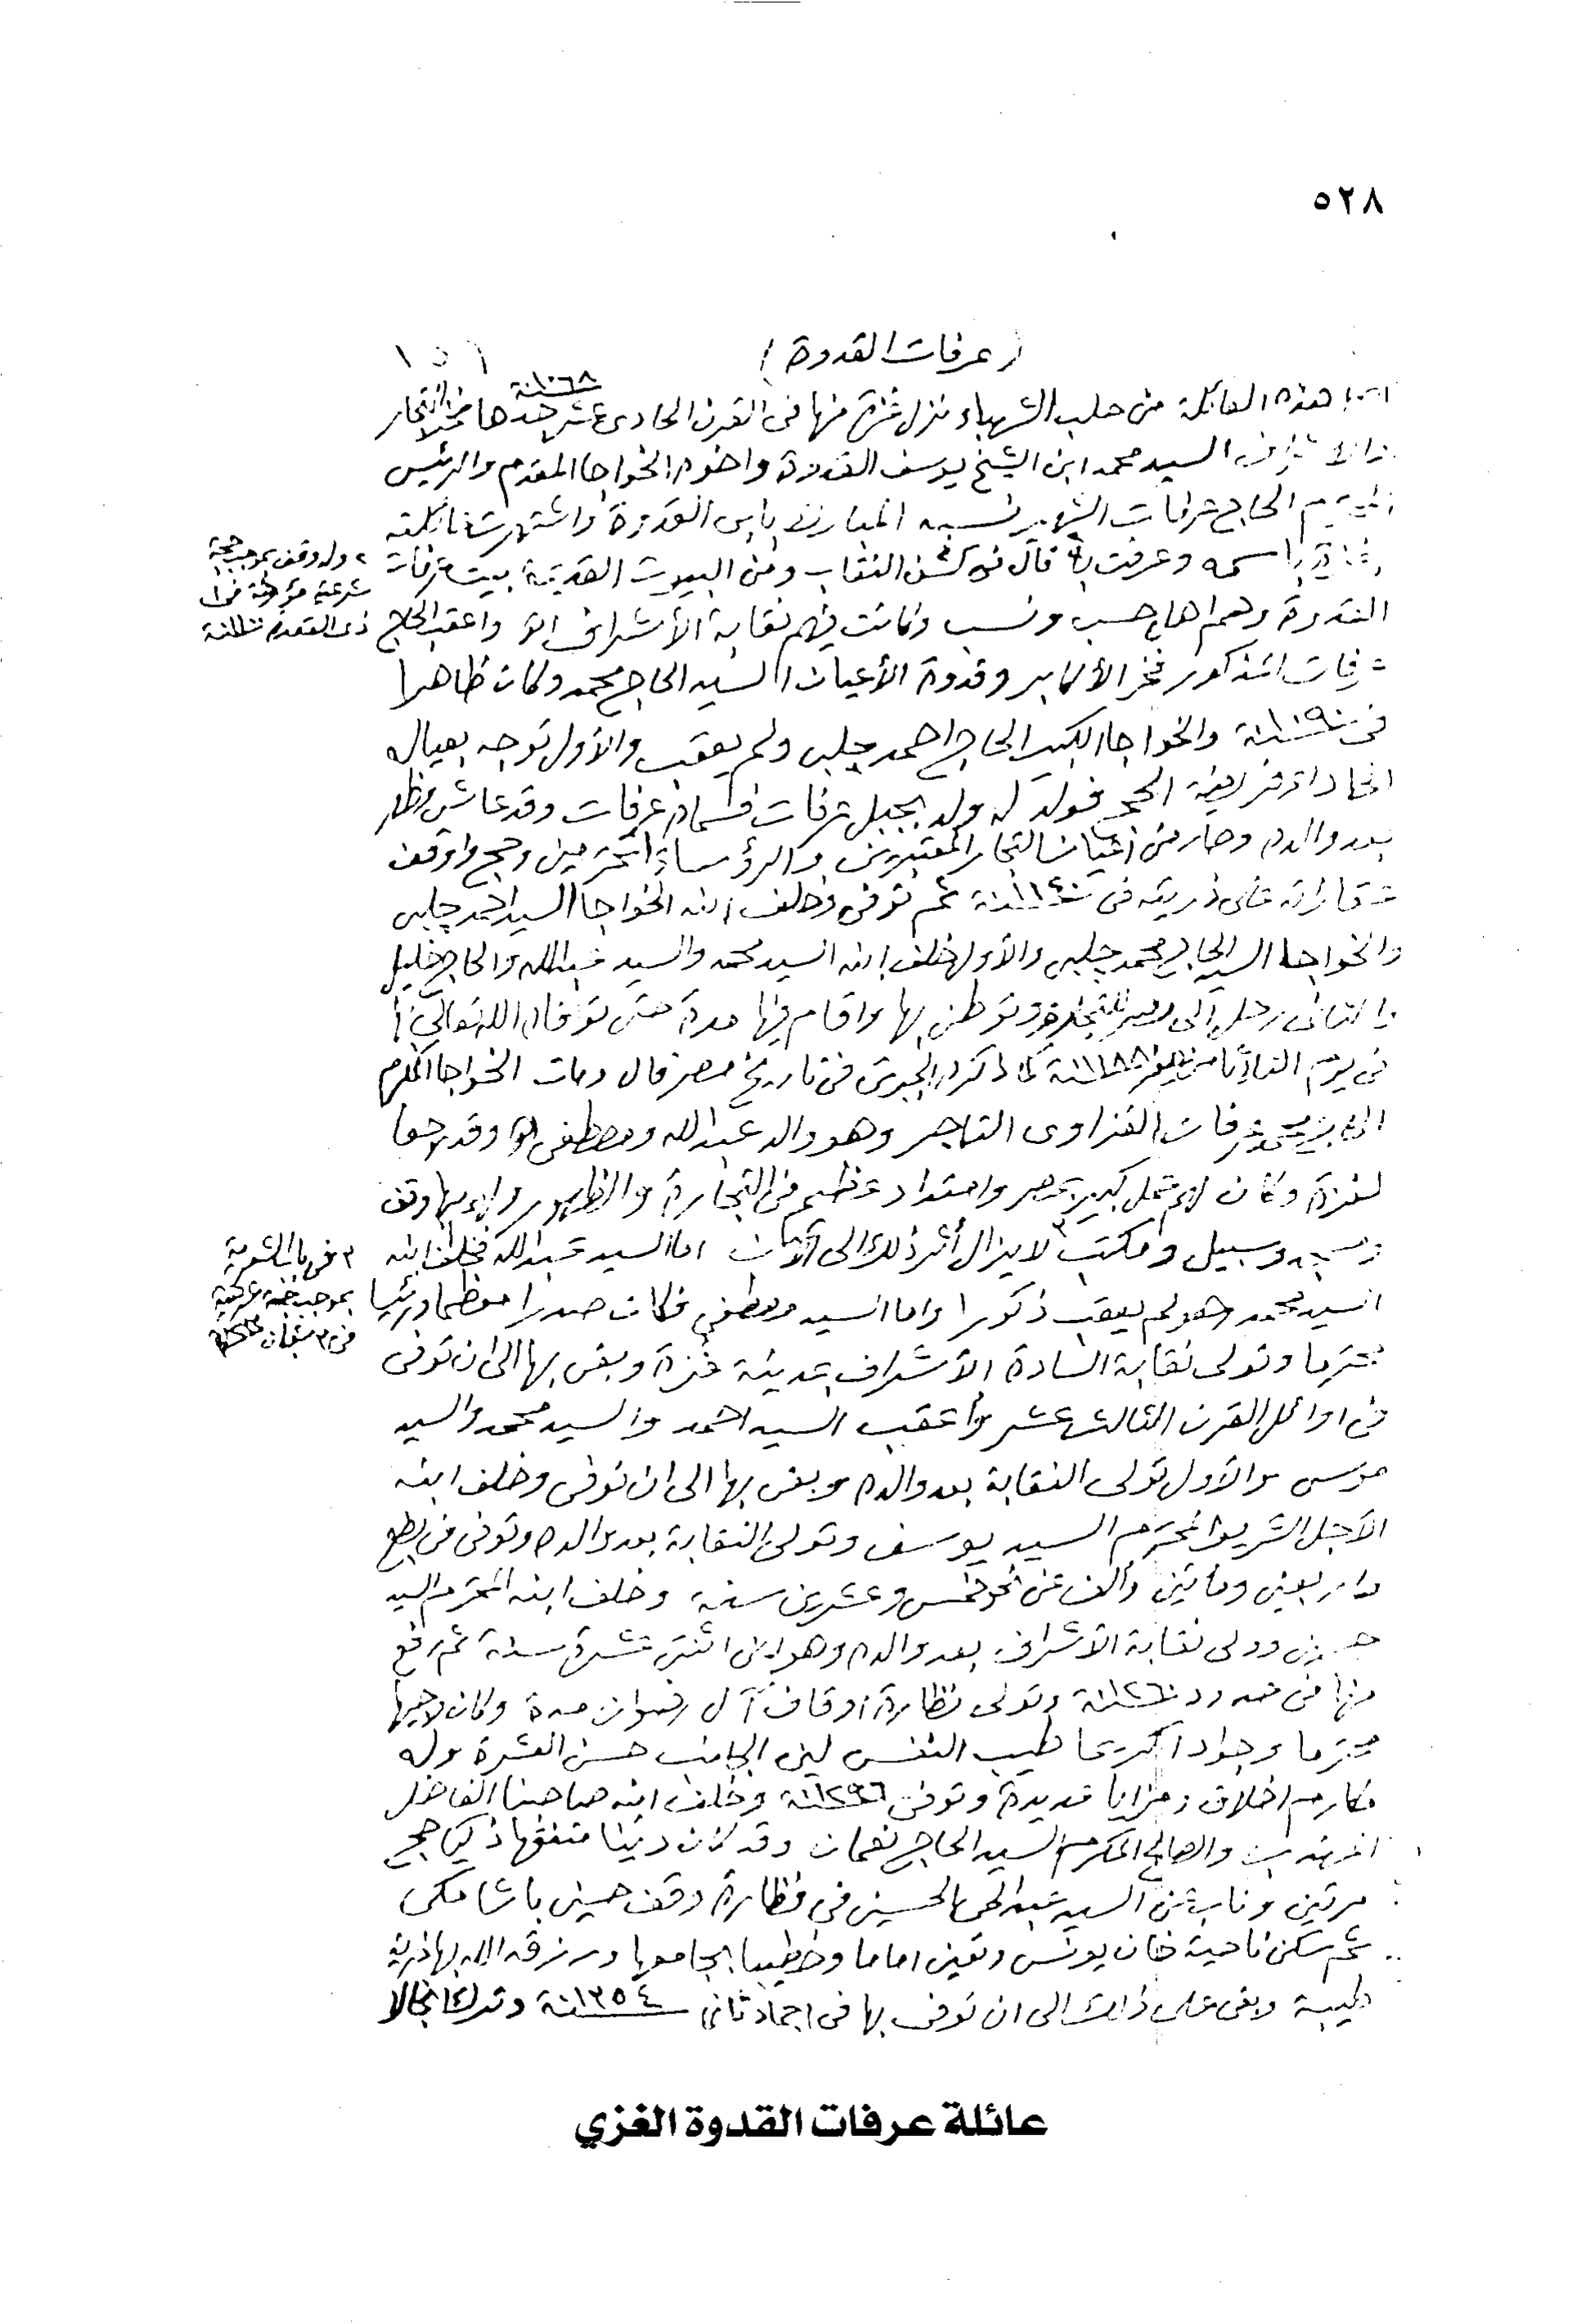 ٥٢٨
(عرفات القدوة)
هذه العائلة من حلب الشهباء نزل غزة منها فى القرن الحادى عشر جدها
سنة ١٠٦٨
السيد محمد ابن الشيخ يوسف القدوة واخوه الخواجا المقدم والرئيس
الحاج عرفات الشهير نسبه المبارك بابن القدوة واشتهرت عائلته
باسمه وعرفت به قال فى كشف النقاب ومن البيوت القديمة بيت عرفات
٢ وله وقف بموجب حجة
شرعية مؤرخة فى ١
ذى القعدة
القدوة وهم اهل حسب ونسب وكانت فيهم نقابة الأشراف الخ واعقب الحاج
عرفات المذكور فخر الأكابر وقدوة الأعيان السيد الحاج محمد وكان ظاهرا
فى سنة ١٠٩٠ والخواجا الكبير الحاج احمد چلبى ولم يعقب والأول توجه بعياله
لاداء فريضة الحج فولد له ولد بجبل عرفات فسماه عرفات وقد عاش وظهر
بعد والده وصار من اعيان التجار المعتبرين والرؤساء المحترمين وحج واوقف
عقاراته على ذريته فى سنة ١١٤٠ ثم توفى وخلف ابنه الخواجا السيد احمد چلبى
والخواجا السيد الحاج محمد چلبى والأول خلف ابنه السيد محمد والسيد عبدالله والحاج خليل
والثانى رحل الى مصر للتجارة وتوطن بها واقام فيها مدة حتى توفاه الله تعالى
فى يوم سنة ١١٨٨ كما ذكره الجبرتى فى تاريخ مصر قال ومات الخواجا المكرم
الحاج محمد عرفات الغزاوى التاجر وهو والد عبدالله ومصطفى الخ وقد رجعا
لغزة وكان لهم محل كبير بمصر وامتداد عظيم فى التجارة والظهور ولهم بها وقف
وسبيل ومكتب ٣ لا يزال أثر ذلك الى الآن اما السيد عبدالله فخلف ابنه
٣ فى باب الشعرية
بموجب حجة شرعية
السيد محمد وهو لم يعقب ذكورا واما السيد مصطفى فكان صدرا معظما ورئيسا
محترما وتولى نقابة السادة الأشراف بمدينة غزة وبقى بها الى ان توفى
فى اوائل القرن الثالث عشر وأعقب السيد احمد والسيد محمد والسيد
موسى والأول تولى النقابة بعد والده وبقى بها الى ان توفى وخلف ابنه
الأجل الشريف المحترم السيد يوسف وتولى النقابة بعد والده وتوفى فى بضع
واربعين ومائتين والف عن نحو خمس وعشرين سنة وخلف ابنه المحترم السيد
حسين وولى نقابة الأشراف بعد والده وهو ابن اثنتى عشرة سنة ثم رفع
منها فى حدود سنة ١٢٦٠ وتولى نظارة اوقاف آل رضوان مدة وكان وجيها
محترما وجوادا كريما طيب النفس لين الجانب حسن العشرة وله
مكارم اخلاق ومزايا عديدة وتوفى سنة ١٢٩٦ وخلف ابنه صاحبنا الفاضل
المهذب والصالح المكرم السيد الحاج نعمان وقد كان دينا متفقها ذكيا حج
مرتين وناب عن السيد عبدالحى الحسينى فى نظارة وقف حسين باشا مكى
ثم سكن ناحية خان يونس وتعين اماما وخطيبا بجامعها ورزقه الله بها ذرية
طيبة وبقى على ذلك الى ان توفى بها فى جماد ثانى سنة ١٣٥٤ وترك انجالا
عائلة عرفات القدوة الغزي